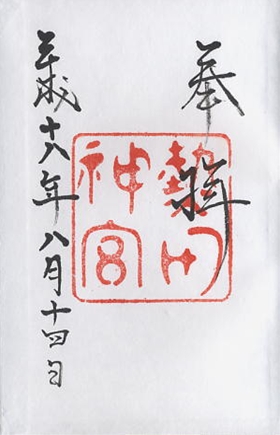 奉拝
熱田
神宮
平成十八年八月十四日